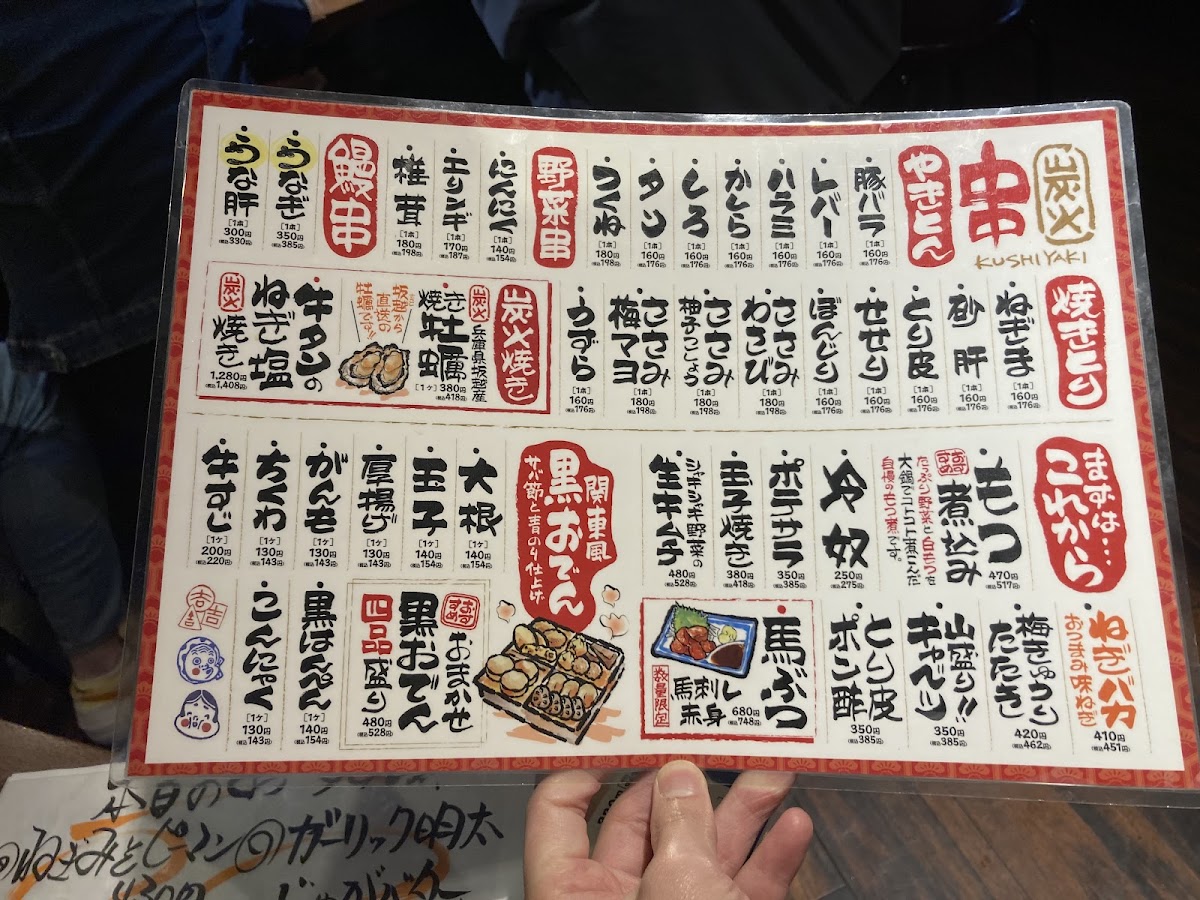 炭火
串
KUSHIYAKI
やきとん
豚バラ
[1本]
160円
(税込176円)
レバー
[1本]
160円
(税込176円)
ハラミ
[1本]
160円
(税込176円)
かしら
[1本]
160円
(税込176円)
しろ
[1本]
160円
(税込176円)
タン
[1本]
160円
(税込176円)
つくね
[1本]
180円
(税込198円)
野菜串
にんにく
[1本]
140円
(税込154円)
エリンギ
[1本]
170円
(税込187円)
椎茸
[1本]
180円
(税込198円)
鰻串
うなぎ
[1本]
350円
(税込385円)
うな肝
[1本]
300円
(税込330円)
焼きとり
ねぎま
[1本]
160円
(税込176円)
砂肝
[1本]
160円
(税込176円)
とり皮
[1本]
160円
(税込176円)
せせり
[1本]
160円
(税込176円)
ぼんじり
[1本]
160円
(税込176円)
ささみ
わさび
[1本]
180円
(税込198円)
ささみ
柚子こしょう
[1本]
180円
(税込198円)
ささみ
梅マヨ
[1本]
180円
(税込198円)
うずら
[1本]
160円
(税込176円)
炭火焼き
炭火
兵庫県坂越産
焼牡蠣
[1ヶ]
380円
(税込418円)
坂越から
直送の
牡蠣です!!
炭火
牛タンの
ねぎ塩
焼き
1,280円
(税込1,408円)
まずは…
これから
もつ
煮込み
おすすめ
470円
(税込517円)
たっぷり野菜と白もつを
大鍋でコトコト煮こんだ
自慢のもつ煮です。
冷奴
250円
(税込275円)
ポテサラ
350円
(税込385円)
玉子焼き
380円
(税込418円)
シャキシャキ野菜の
生キムチ
480円
(税込528円)
ねぎバカ
おつまみ味ねぎ
410円
(税込451円)
梅きゅうり
たたき
420円
(税込462円)
山盛り!!
キャベツ
350円
(税込385円)
とり皮
ポン酢
350円
(税込385円)
馬ぶつ
馬刺し
赤身
680円
(税込748円)
数量限定
関東風
黒おでん
サバ節と青のり仕上げ
大根
[1ヶ]
140円
(税込154円)
玉子
[1ヶ]
140円
(税込154円)
厚揚げ
[1ヶ]
130円
(税込143円)
がんも
[1ヶ]
130円
(税込143円)
ちくわ
[1ヶ]
130円
(税込143円)
牛すじ
[1ヶ]
200円
(税込220円)
おすすめ
おまかせ
黒おでん
四品盛り
480円
(税込528円)
黒はんぺん
[1ヶ]
140円
(税込154円)
こんにゃく
[1ヶ]
130円
(税込143円)
本日の
ねぎみそピーマン
430円
ガーリック明太
じゃがバター